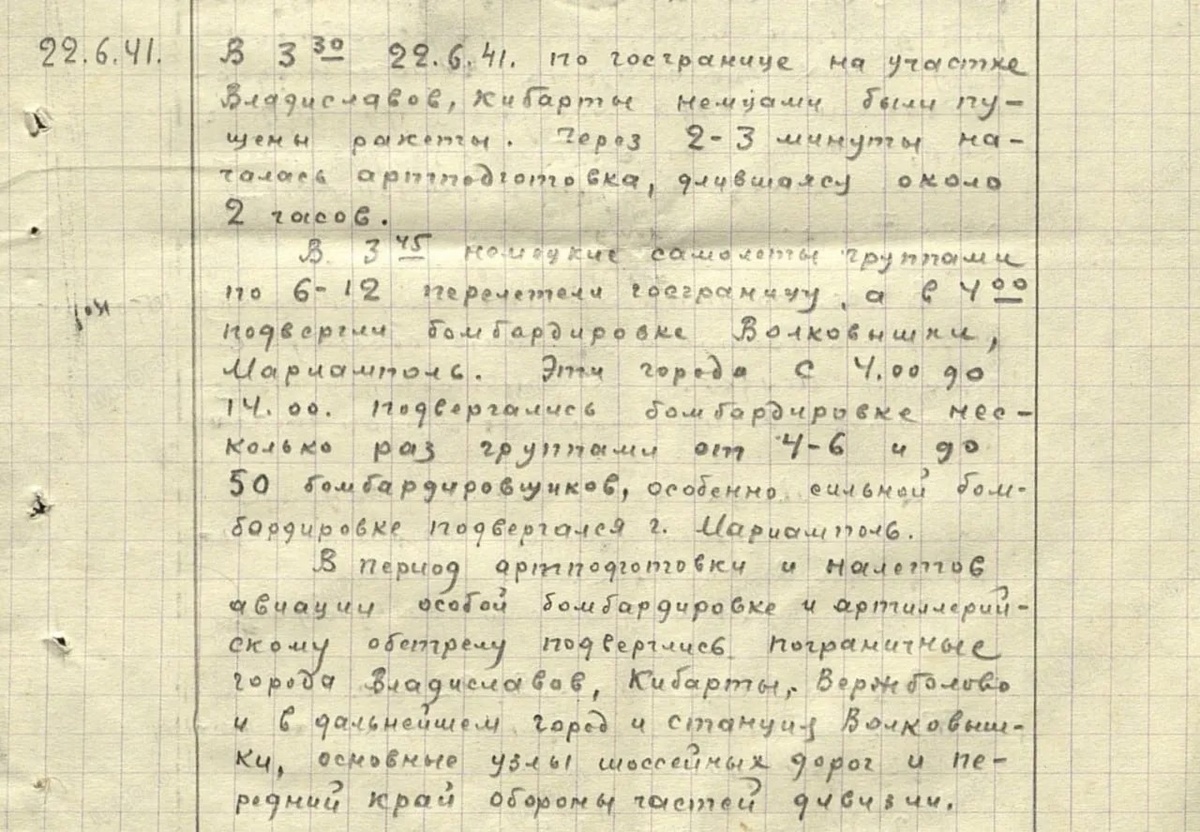 22.6.41. В 3 30 22.6.41. по госгранице на участке
Владиславов, Кибарты немцами были пу-
щены ракеты. Через 2-3 минуты на-
чалась артподготовка, длившаяся около
2 часов.
В 3 45 немецкие самолеты группами
по 6-12 перелетели госграницу, а в 4 00
подвергли бомбардировке Волковышки,
Мариамполь. Эти города с 4.00 до
14.00. подвергались бомбардировке нес-
колько раз группами от 4-6 и до
50 бомбардировщиков, особенно сильной бом-
бардировке подвергался г. Мариамполь.
В период артподготовки и налетов
авиации особой бомбардировке и артиллерий-
скому обстрелу подверглись пограничные
города Владиславов, Кибарты, Вержболово
и в дальнейшем город и станция Волковыш-
ки, основные узлы шоссейных дорог и пе-
редний край обороны частей дивизии.